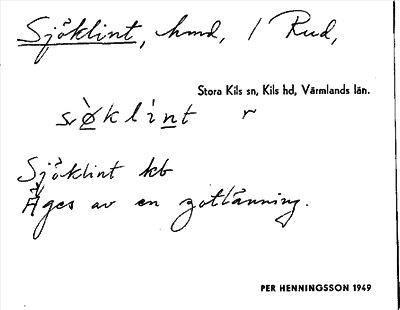 Sjöklint, hmd, / Rud,
Stora Kils sn, Kils hd, Värmlands län.
søklint r
Sjöklint kb
Äges av en gotlänning.
PER HENNINGSSON 1949